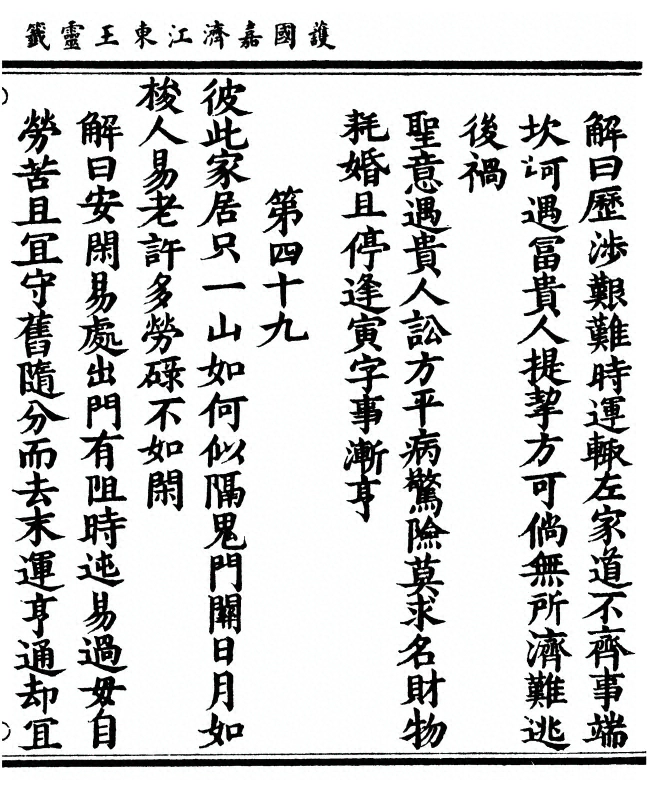 護國嘉濟江東王靈籤
解曰歷渉艱難時運輙左家道不齊事端
坎坷遇冨貴人提挈方可倘無所濟難逃
後禍
聖意遇貴人訟方平病驚險莫求名財物
耗婚且停逢寅字事漸亨
第四十九
彼此家居只一山如何似隔鬼門關日月如
梭人易老許多勞碌不如閑
解曰安閑易處出門有阻時迍易過毋自
勞苦且冝守舊隨分而去末運亨通却冝